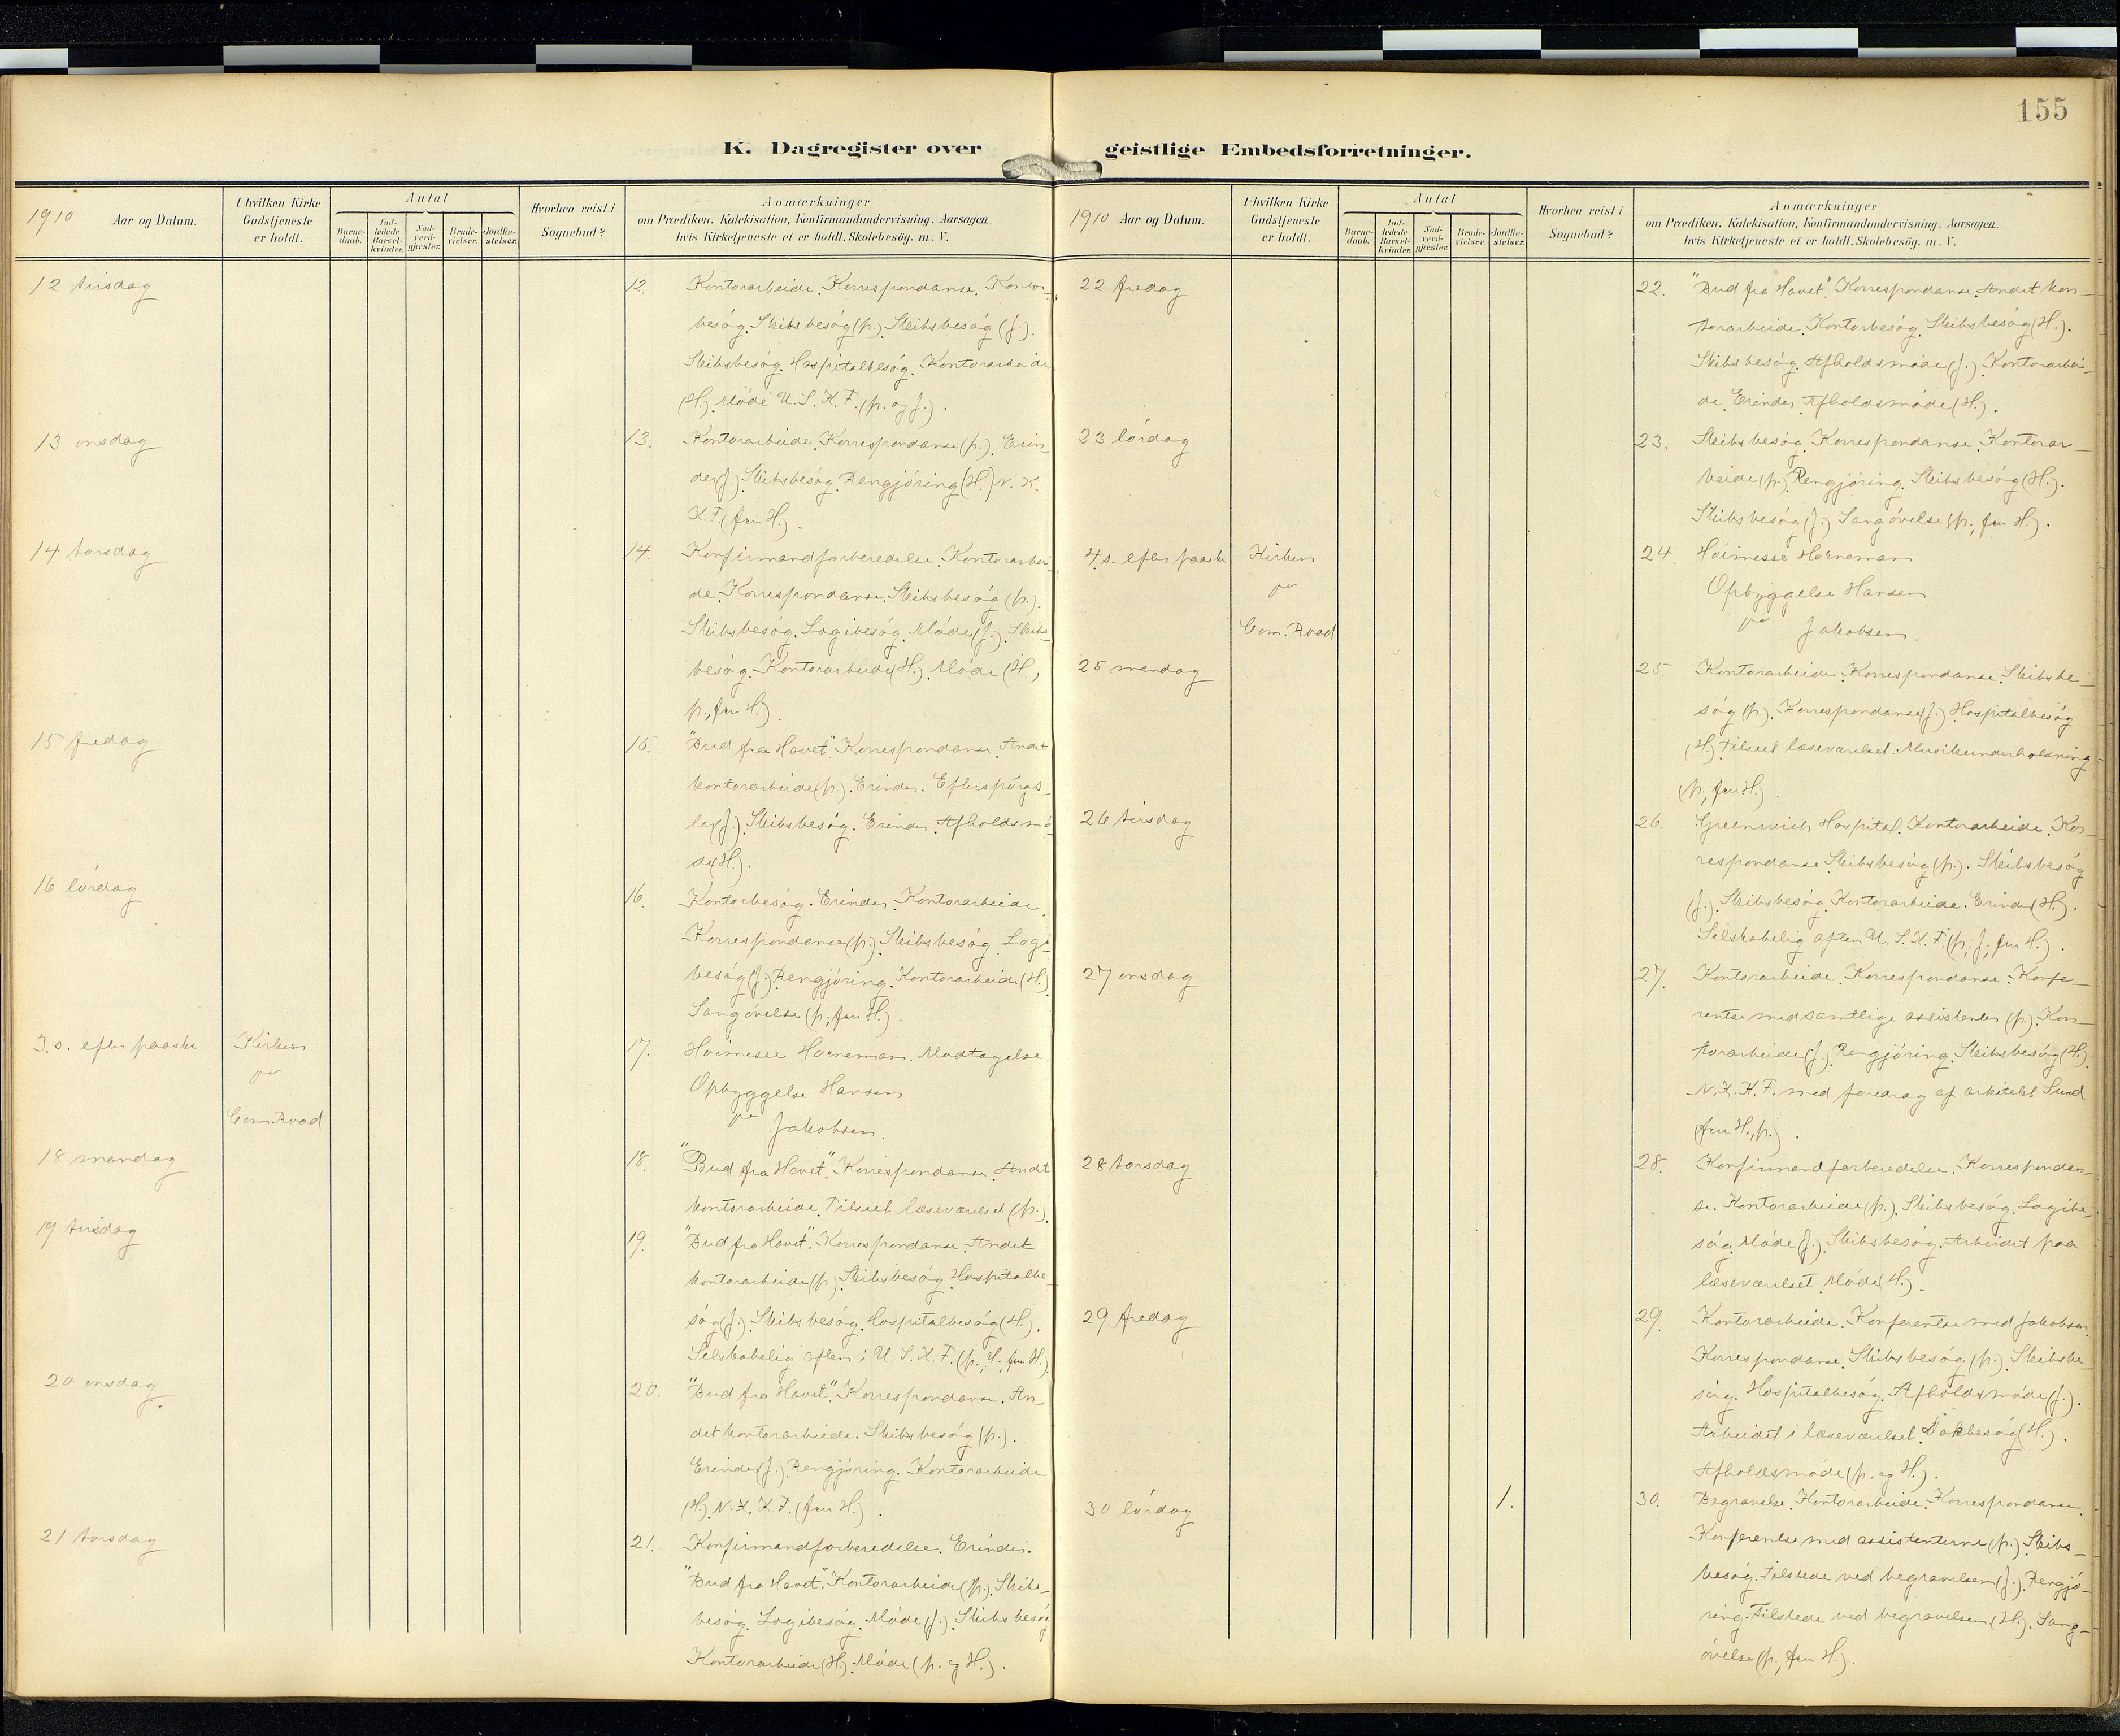 155
K. Dagregister over geistlige Embedsforretninger.
1910 Aar og Datum.
I hvilken Kirke Gudstjeneste er holdt.
Antal
Barnedaab.
Indledede Barselkvinder.
Nadverdgjæster.
Brudevielser.
Jordfæstelser.
Hvorhen reist i Sognebud?
Anmærkninger
om Prædiken, Katekisation, Konfirmandundervisning, Aarsagen
hvis Kirketjeneste ei er holdt, Skolebesög. m. V.
12 tirsdag
12. Kontorarbeide. Korrespondanse. Kontor-
besóg. Skibsbesóg (p.) Skibsbesóg (J.).
Skibsbesóg. Hospitalbesóg. Kontorarbeide
(H.). Móde U.S.K.F. (p. og J.).
13 onsdag
13. Kontorarbeide. Korrespondanse (p.). Erin-
der (J.) Skibsbesóg. Rengjóring (H.) N. K.
K.F. (fru H.).
14 torsdag
14. Konfirmandforberedelse. Kontorarbei-
de. Korrespondanse. Skibsbesóg (p.).
Skibsbesóg. Logibesóg. Móde (J.). Skibs-
besóg. Kontorarbeide (H.). Móde (H.,
p., fru H.).
15 fredag
15. "Bud fra Havet". Korrespondanse. Andet
kontorarbeide (p.). Erinder. Efterspórgs-
ler (J.). Skibsbesóg. Erinder. Afholdsmó-
de (H.).
16 lórdag
16. Kontorbesóg. Erinder. Kontorarbeide.
Korrespondanse (p.). Skibsbesóg. Logi-
besóg (J.). Rengjóring. Kontorarbeide (H.).
Sangóvelse (p., fru H.).
3. s. efter paaske
Kirken
Com. Road
17. Hóimesse Horneman. Modtagelse
Opbyggelse Hansen
Jakobsen.
18 mandag
18. "Bud fra Havet". Korrespondanse. Andet
kontorarbeide. Tilseet læseværelset (p.).
19 tirsdag
19. "Bud fra Havet". Korrespondanse. Andet
kontorarbeide (p.) Skibsbesóg. Hospitalbe-
sóg (J.). Skibsbesóg. Hospitalbesóg (H.).
Selskabelig aften i U.S.K.F. (p., H., fru H.).
20 onsdag
20. "Bud fra Havet". Korrespondanse. An-
det kontorarbeide. Skibsbesóg (p.).
Erinder (J.). Rengjóring. Kontorarbeide
(H.). N.K.K.F. (fru H.).
21 torsdag
21. Konfirmandforberedelse. Erinder.
"Bud fra Havet". Kontorarbeide (p.). Skibs-
besóg. Logibesóg. Móde (J.). Skibsbesóg
Kontorarbeide (H.). Móde (p. og H.).
1910 Aar og Datum.
I hvilken Kirke Gudstjeneste er holdt.
Antal
Barnedaab.
Indledede Barselkvinder.
Nadverdgjæster.
Brudevielser.
Jordfæstelser.
Hvorhen reist i Sognebud?
Anmærkninger
om Prædiken, Katekisation, Konfirmandundervisning, Aarsagen
hvis Kirketjeneste ei er holdt, Skolebesög. m. V.
22 fredag
22. "Bud fra Havet". Korrespondanse. Andet kon-
torarbeide. Kontorbesóg. Skibsbesóg (H.).
Skibsbesóg. Afholdsmóde (J.). Kontorarbei-
de. Erinder. Afholdsmóde (H.).
23 lórdag
23. Skibsbesóg. Korrespondanse. Kontorar-
beide (p.). Rengjóring. Skibsbesóg (H.).
Skibsbesóg (J.). Sangóvelse (p., fru H.).
4. s. efter paaske
Kirken
Com. Road
24. Hóimesse Horneman
Opbyggelse Hansen
Jakobsen.
25 mandag
25. Kontorarbeide. Korrespondanse. Skibsbe-
sóg (p.). Korrespondanse (J.) Hospitalbesóg
(H.) Tilseet læseværelset. Musikunderholdning
(p., fru H.).
26 tirsdag
26. Greenwich Hospital. Kontorarbeide. Kor-
respondanse. Skibsbesóg (p.). Skibsbesóg
(J.). Skibsbesóg. Kontorarbeide. Erinder (H.).
Selskabelig aften U.S.K.F. (p., J., fru H.).
27 onsdag
27. Kontorarbeide. Korrespondanse. Konfe-
rentse med samtlige assistenter (p.). Kon-
torarbeide (J.). Rengjóring. Skibsbesóg (H.).
N.K.K.F. med foredrag af arkitekt Sund
(fru H., p.).
28 torsdag
28. Konfirmandforberedelse. Korrespondan-
se. Kontorarbeide (p.). Skibsbesóg. Logibe-
sóg. Móde (J.). Skibsbesóg. Arbeidet paa
læseværelset. Móde (H.).
29 fredag
29. Kontorarbeide. Konferentse med Jakobsen.
Korrespondanse. Skibsbesóg (p.). Skibsbe-
sóg. Hospitalbesóg. Afholdsmóde (J.).
Arbeidet i læseværelset. Dokbesóg (H.).
Afholdsmóde (p. og H.).
30 lórdag
1.
30. Begravelse. Kontorarbeide. Korrespondanse.
Konferentse med assistenterne (p.). Skibs-
besóg. Tilstede ved begravelsen (J.). Rengjó-
ring. Tilstede ved begravelsen (H.). Sang-
óvelse (p., fru H.).